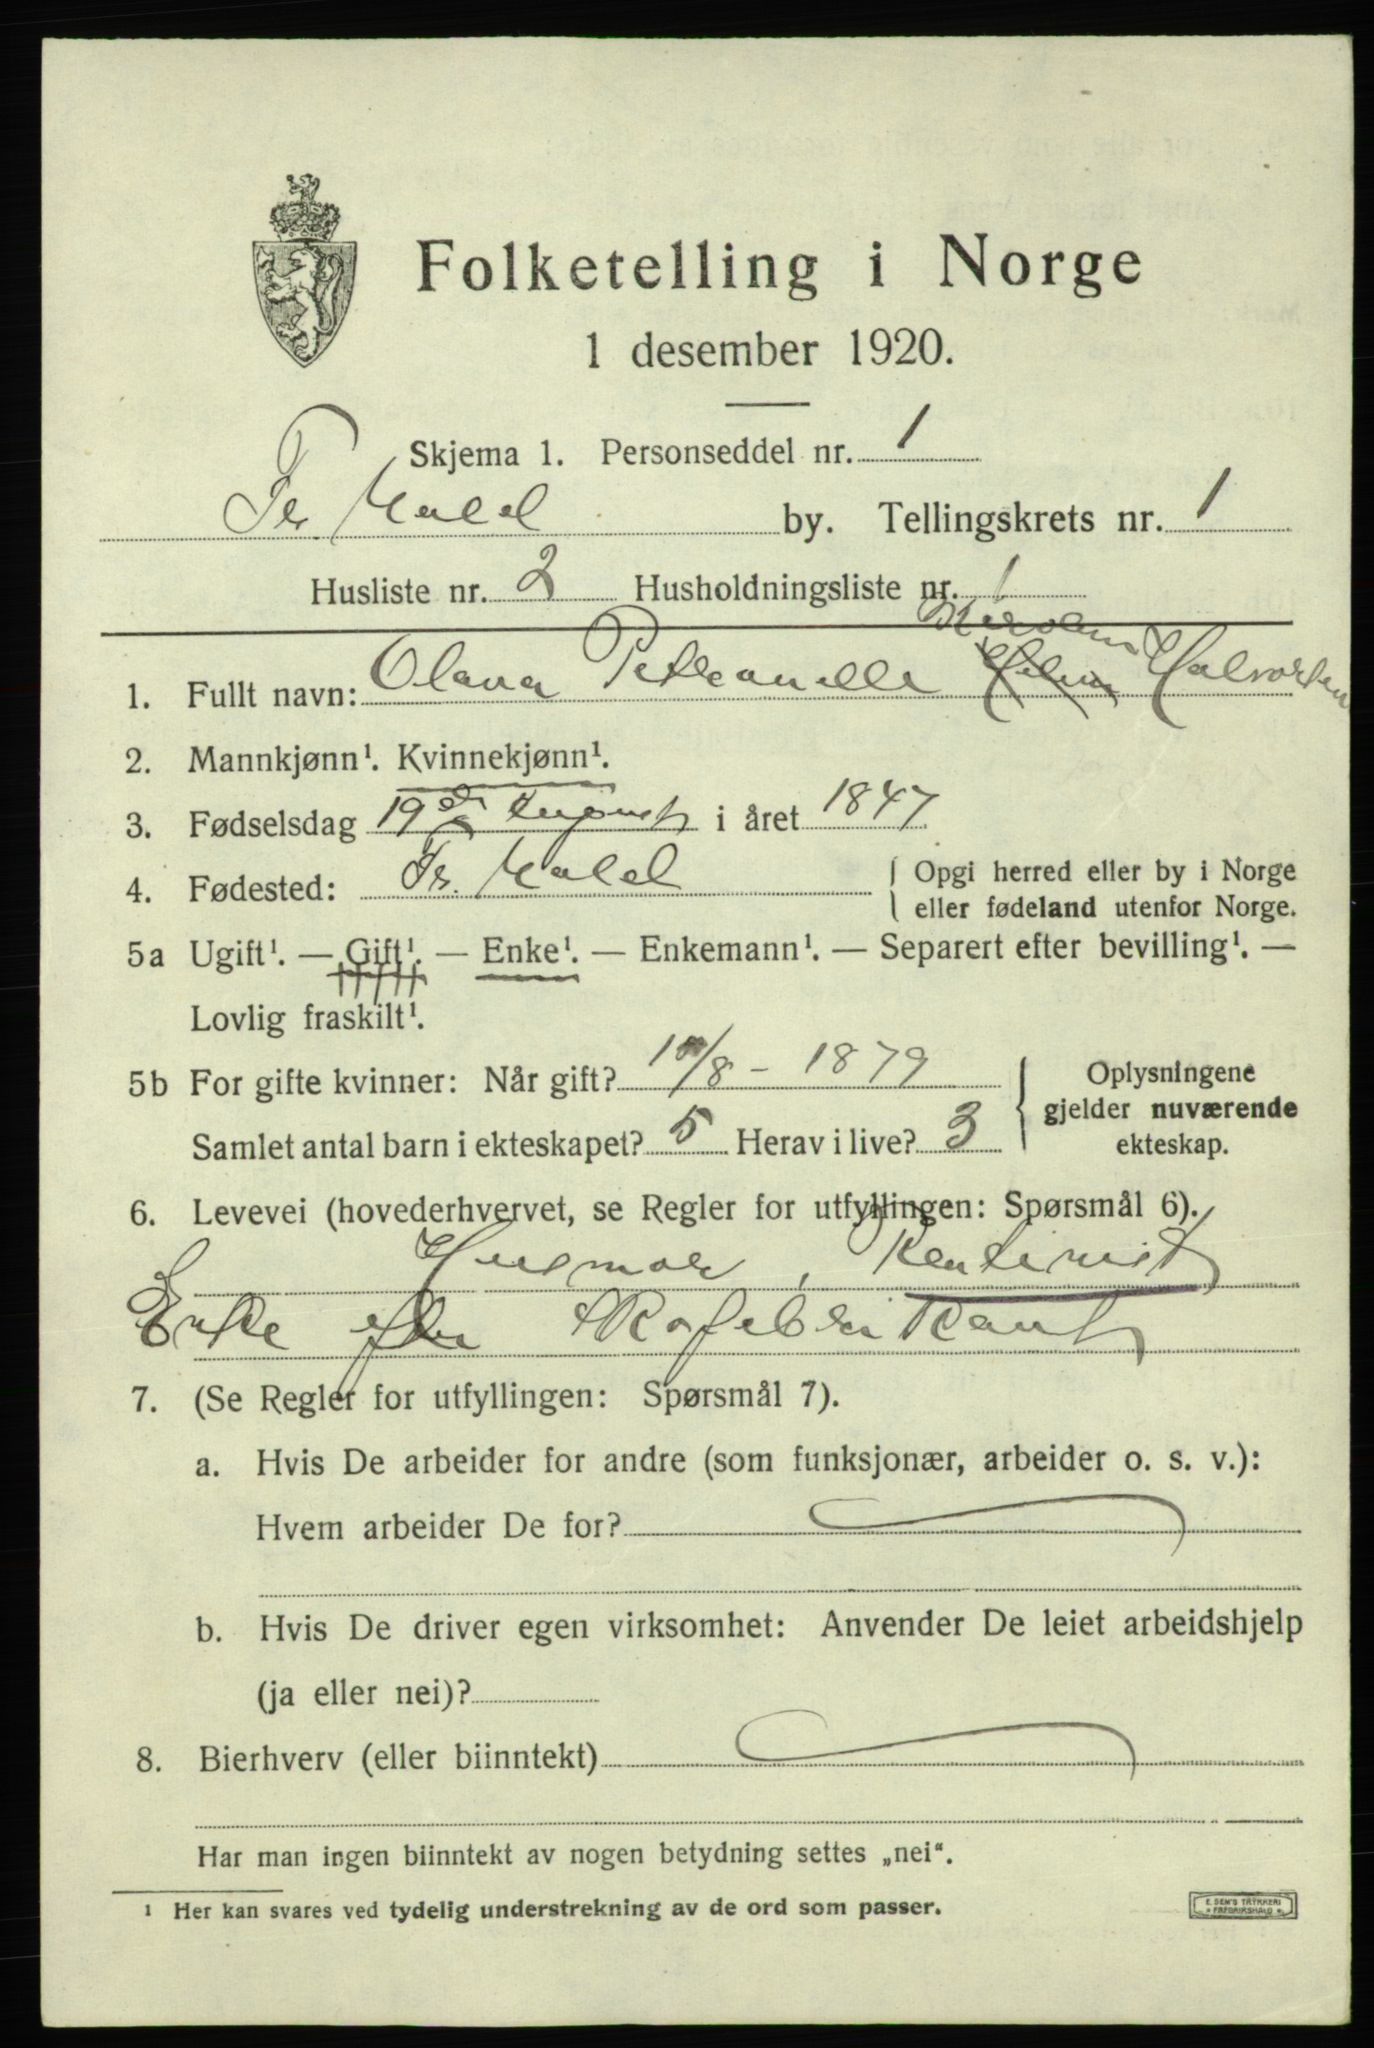 Folketelling i Norge
1 desember 1920.
Skjema 1. Personseddel nr. 1
Fr. Hald by. Tellingskrets nr. 1
Husliste nr. 2 Husholdningsliste nr. 1
1. Fullt navn: Olava Petranelle Halvorsen
2. Mannkjønn¹. Kvinnekjønn¹.
3. Fødselsdag 19de August i året 1847
4. Fødested: Fr. Hald { Opgi herred eller by i Norge
eller fødeland utenfor Norge.
5a Ugift¹. — Gift¹. — Enke¹. — Enkemann¹. — Separert efter bevilling¹. —
Lovlig fraskilt¹.
5b For gifte kvinner: Når gift? /8 - 1879 } Oplysningene
gjelder nuværende
ekteskap.
Samlet antal barn i ekteskapet? 5 Herav i live? 3
6. Levevei (hovederhvervet, se Regler for utfyllingen: Spørsmål 6).
Husmor, Rentenist
Enke efter Skofabrikant
7. (Se Regler for utfyllingen: Spørsmål 7).
a. Hvis De arbeider for andre (som funksjonær, arbeider o. s. v.):
Hvem arbeider De for?
b. Hvis De driver egen virksomhet: Anvender De leiet arbeidshjelp
(ja eller nei)?
8. Bierhverv (eller biinntekt)
Har man ingen biinntekt av nogen betydning settes „nei“.
¹ Her kan svares ved tydelig understrekning av de ord som passer.
E. SEM'S TRYKKERI
FREDRIKSHALD